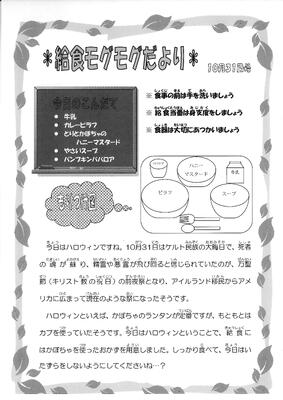 *給食モグモグだより*
10月31日号
今日のこんだて
• 牛乳
• カレーピラフ
• とりとかぼちゃの
ハニーマスタード
• やさいスープ
• パンプキンババロア
※食事の前は手を洗いましょう
※給食当番は身支度をしましょう
※食器は大切にあつかいましょう
ハニー
マスタード
ピラフ
スープ
今日はハロウィンですね。10月31日はケルト民族の大晦日で、死者
の魂が蘇り、精霊や悪霊が飛び回ると信じられていたのが、万聖
節（キリスト教の祝日）の前夜祭となり、アイルランド移民からアメ
リカに広まって現在のような祭になったそうです。
ハロウィンといえば、かぼちゃのランタンが定番ですが、もともとは
カブを使っていたそうです。今日はハロウィンということで、給食に
はかぼちゃを使ったおかずを用意しました。しっかり食べて、今日はい
たずらをしないようにしてくださいね…？